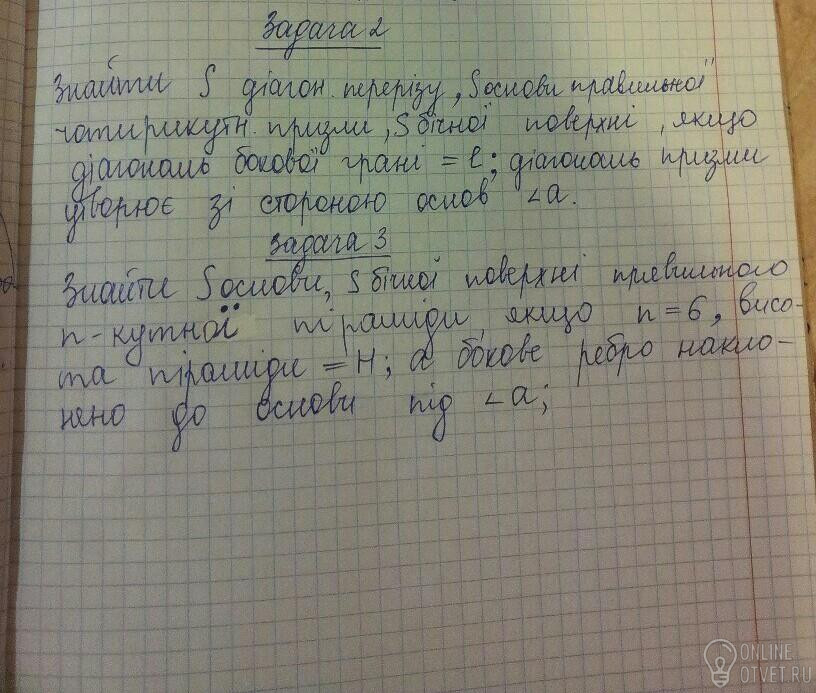 Задача 2
Знайти S діагон. перерізу, Sоснови правильної
чотирикутн. призми, S бічної поверхні, якщо
діагональ бокової грані = ℓ; діагональ призми
утворює зі стороною основ ∠a.
Задача 3
Знайти Sоснови, S бічної поверхні правильного
n-кутної піраміди, якщо n = 6, висо-
та піраміди = H; а бокове ребро накло-
нено до основи під ∠a;
ONLINE
OTVET.RU